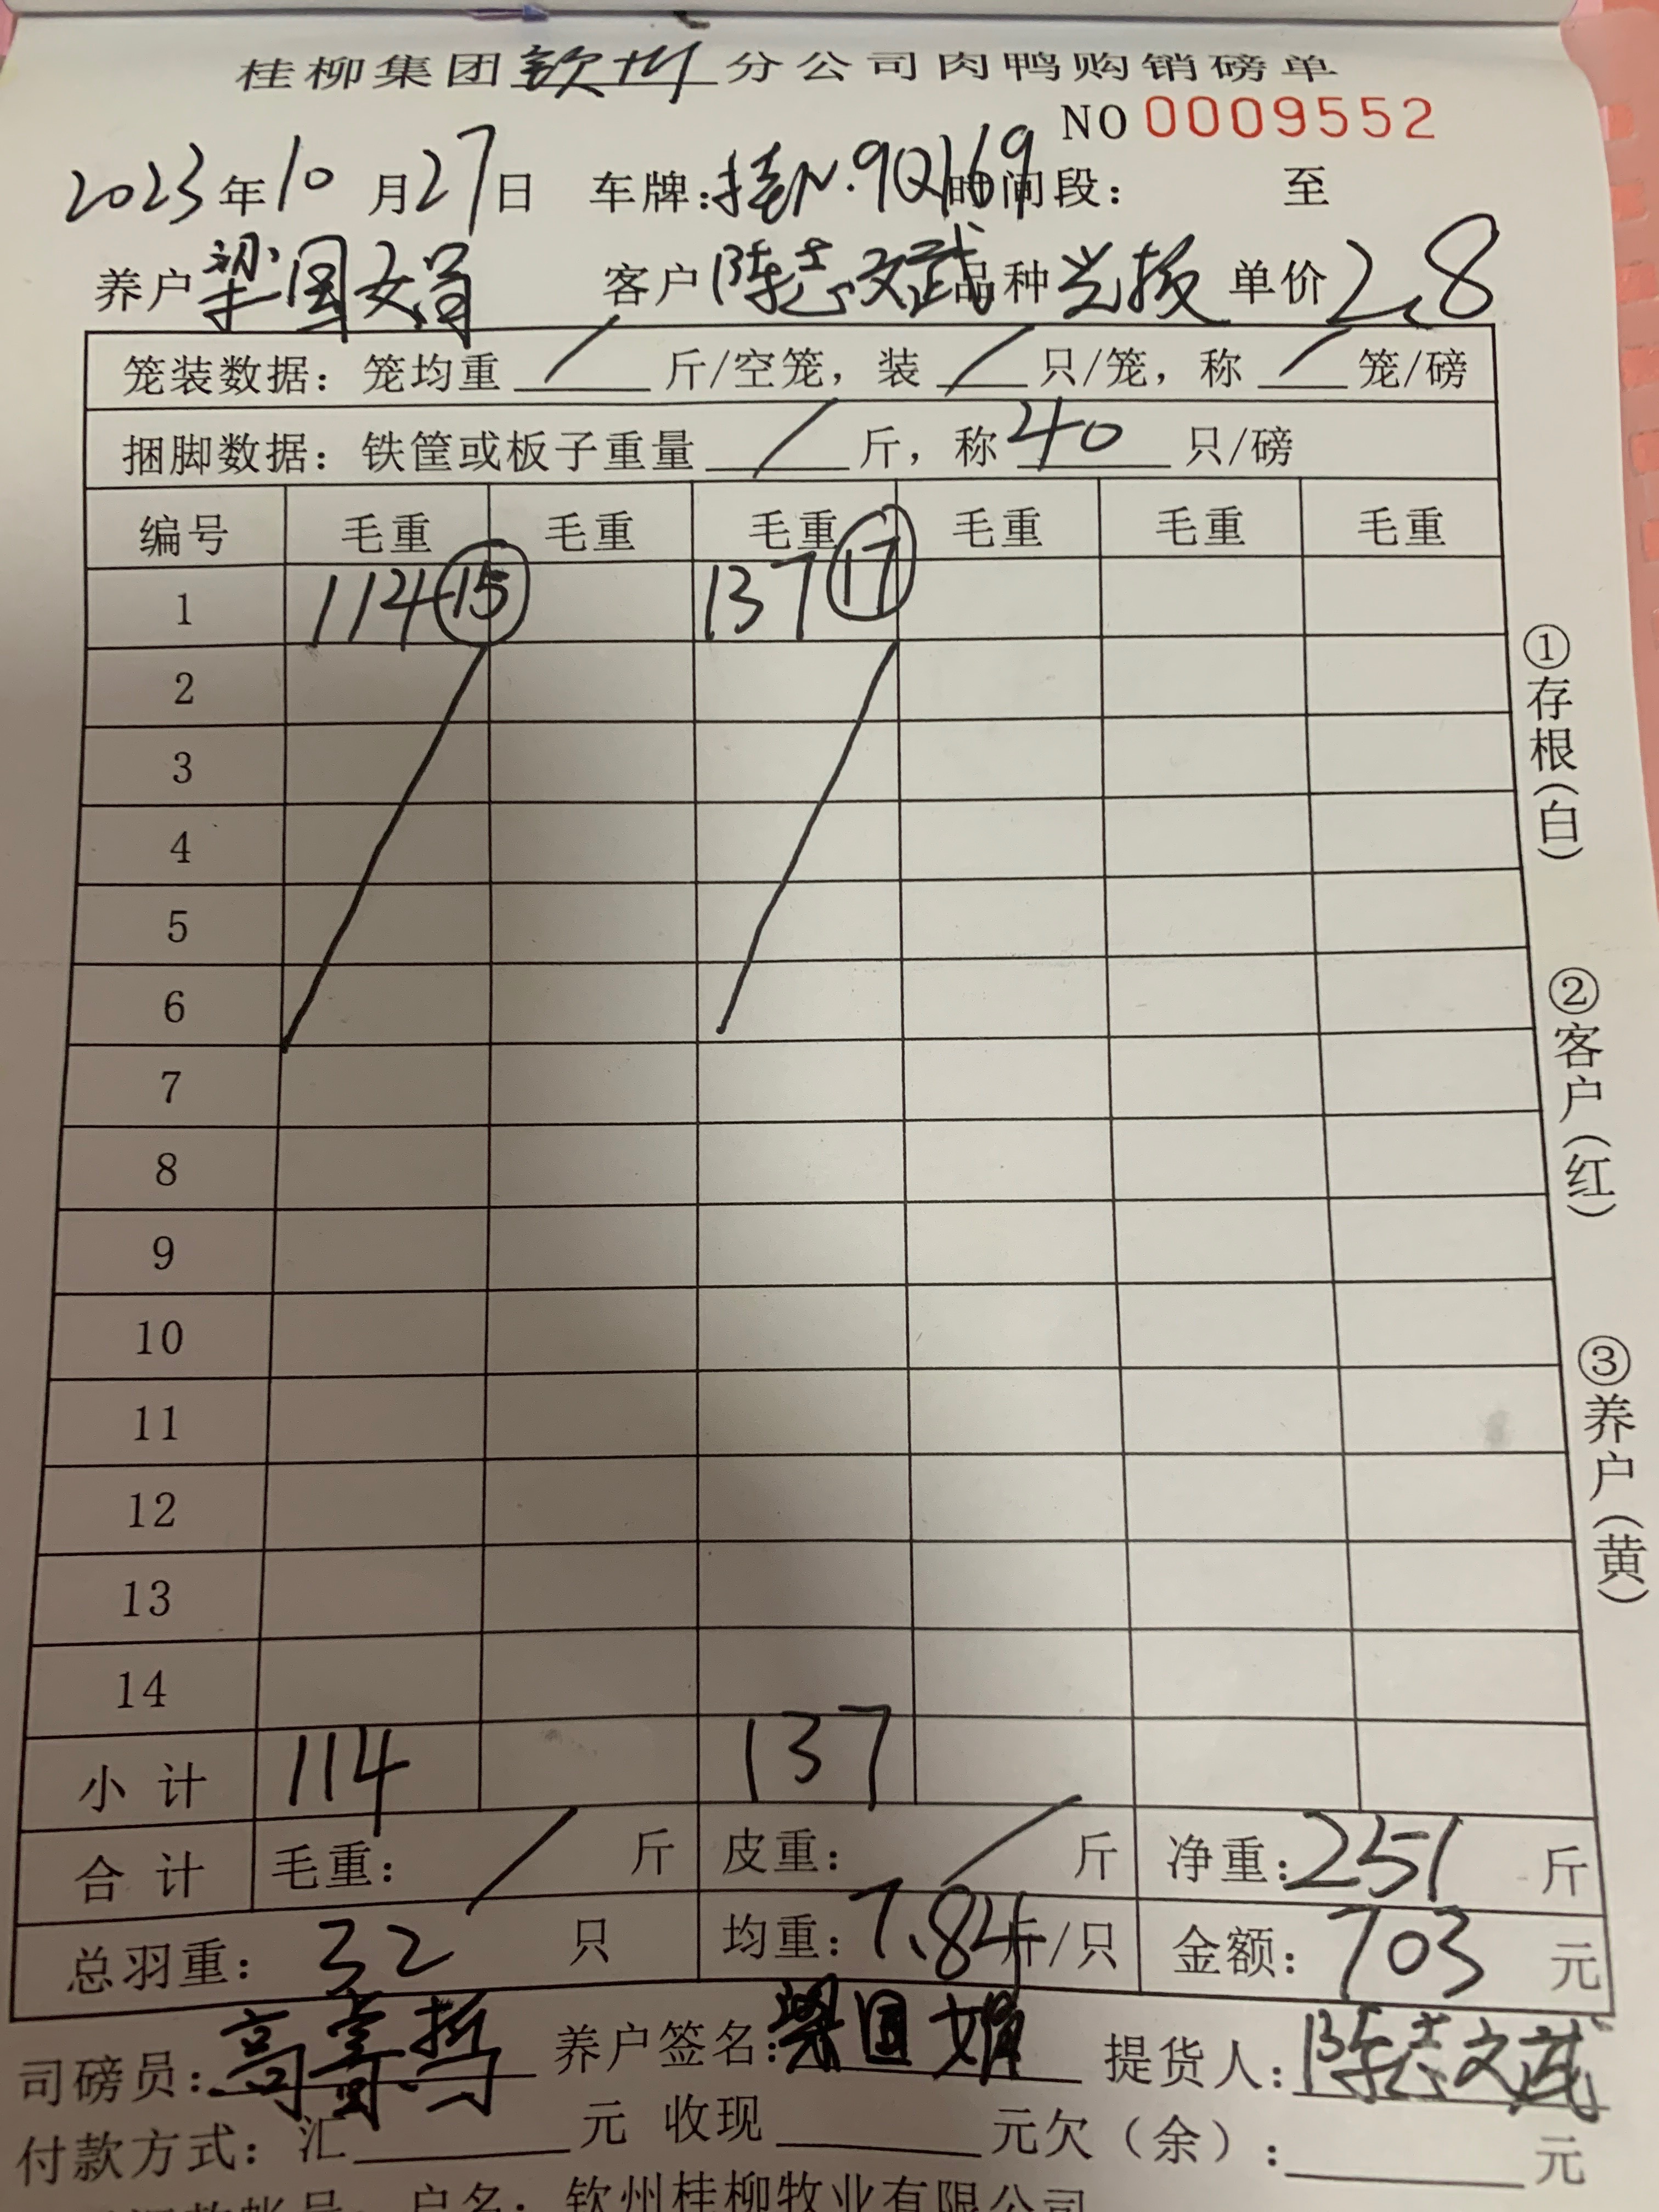 桂柳集团钦州分公司肉鸭购销磅单
NO 0009552
2023年10月27日 车牌:桂N.9Q169时间段: 至
养户梁国娟 客户陈志斌 品种 单价2.8
笼装数据: 笼均重 / 斤/空笼, 装 / 只/笼, 称 / 笼/磅
捆脚数据: 铁筐或板子重量 / 斤, 称40只/磅
编号 毛重 毛重 毛重 毛重 毛重 毛重
1 114 ⑮ 137 ⑰
2
3
4
5
6
7
8
9
10
11
12
13
14
小计 114 137
合计 毛重: / 斤 皮重: / 斤 净重:251斤
总羽重: 32 只 均重:7.84斤/只 金额:703元
司磅员: 养户签名:梁国娟 提货人:陈志斌
付款方式: 汇 元 收现 元欠(余): 元
户名: 钦州桂柳牧业有限公司
①存根(白)
②客户(红)
③养户(黄)